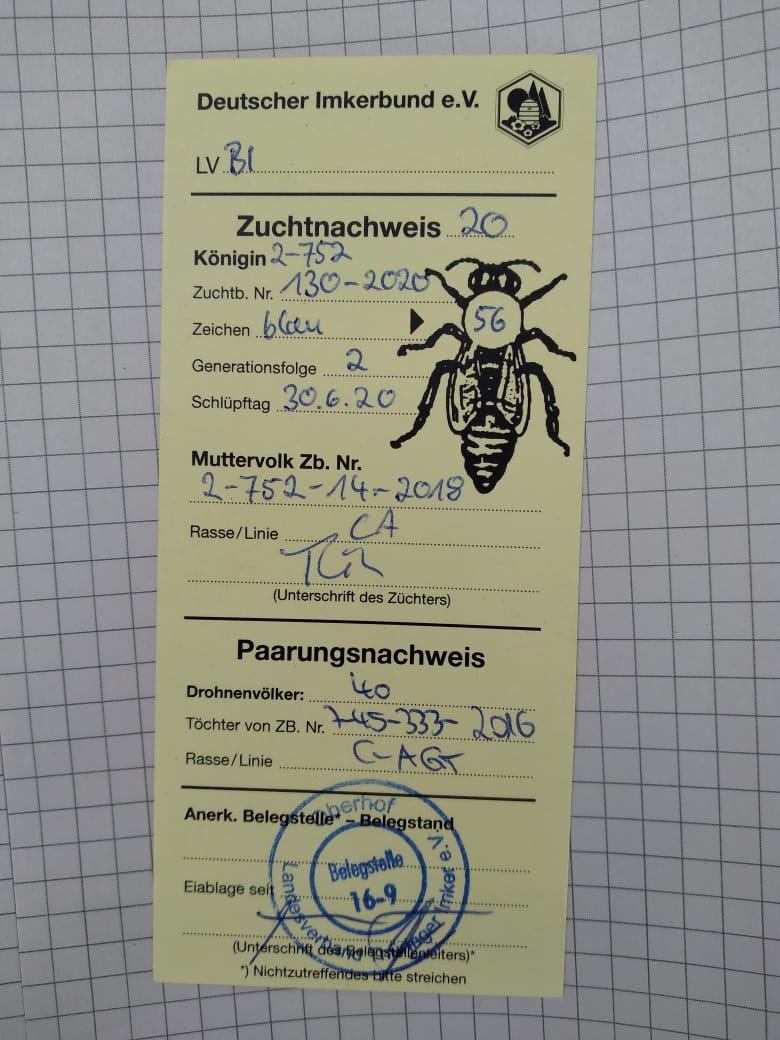 Deutscher Imkerbund e.V.
LV BI
Zuchtnachweis 20
Königin 2-752
Zuchtb. Nr. 130-2020
Zeichen blau
56
Generationsfolge 2
Schlüpftag 30.6.20
Muttervolk Zb. Nr.
2-752-14-2018
Rasse/Linie CA
(Unterschrift des Züchters)
Paarungsnachweis
Drohnenvölker:
Töchter von ZB. Nr. 7-45-333-2016
Rasse/Linie C-AGT
Oberhof
Anerk. Belegstelle* – Belegstand
Belegstelle
16-9
Eiablage seit
Landesverband Thüringer Imker e.V.
(Unterschrift des Belegstellenleiters)*
*) Nichtzutreffendes bitte streichen